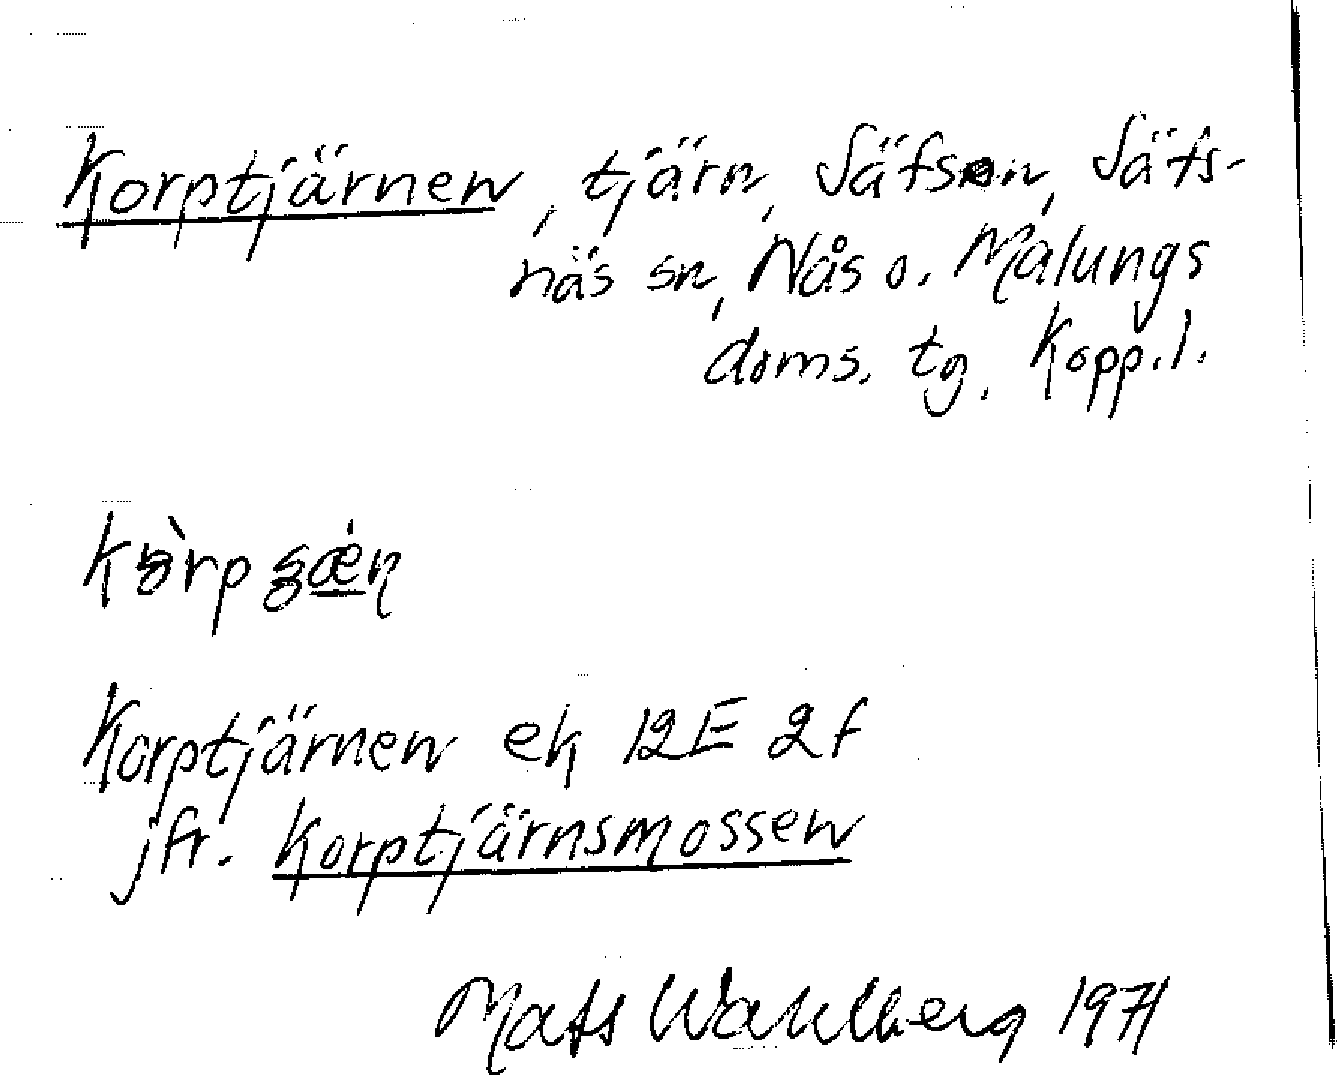 Korptjärnen, tjärn, Säfsen, Säfs-
näs sn, Nås o. Malungs
doms. tg, Kopp.l.
Korptjärnen ek 12E 2f
jfr. Korptjärnsmossen
Mats Wahlberg 1971